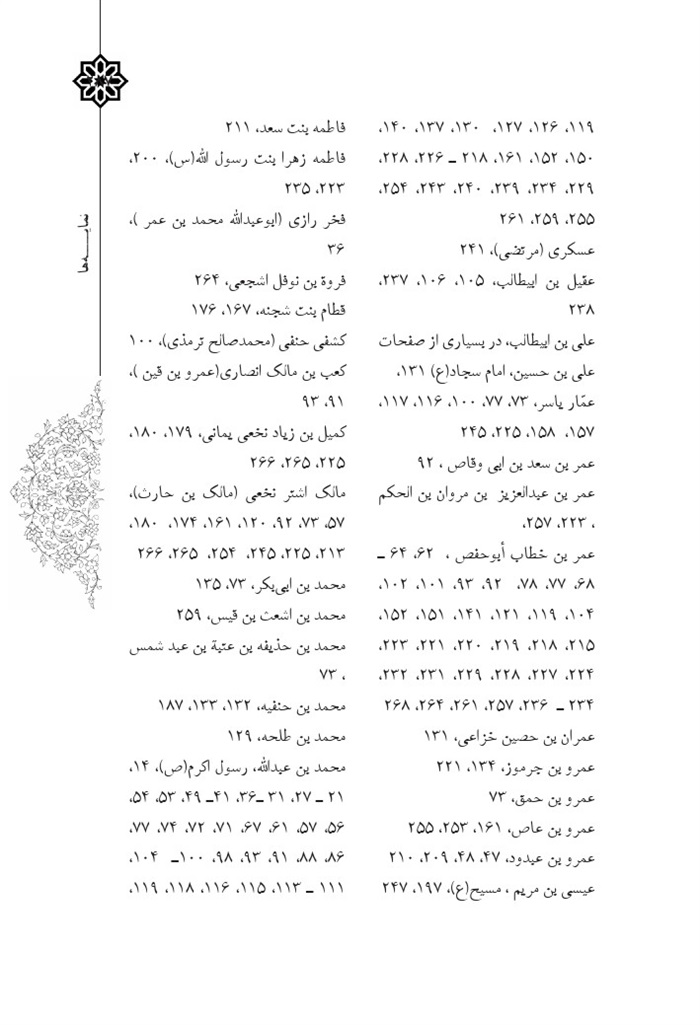 نمایه‌ها
۱۱۹، ۱۲۶، ۱۲۷، ۱۳۰، ۱۳۷، ۱۴۰،
۱۵۰، ۱۵۲، ۱۶۱، ۲۱۸ ــ ۲۲۶، ۲۲۸،
۲۲۹، ۲۳۴، ۲۳۹، ۲۴۰، ۲۴۳، ۲۵۴،
۲۵۵، ۲۵۹، ۲۶۱
عسکری (مرتضی)، ۲۴۱
عقیل بن ابیطالب، ۱۰۵، ۱۰۶، ۲۳۷،
۲۳۸
علی بن ابیطالب، در بسیاری از صفحات
علی بن حسین، امام سجاد(ع) ۱۳۱،
عمّار یاسر، ۷۳، ۷۷، ۱۰۰، ۱۱۶، ۱۱۷،
۱۵۷، ۱۵۸، ۲۲۵، ۲۴۵
عمر بن سعد بن ابی وقاص ، ۹۲
عمر بن عبدالعزیز بن مروان بن الحکم
، ۲۲۳، ۲۵۷،
عمر بن خطاب أبوحفص ، ۶۲، ۶۴ ــ
۶۸، ۷۷، ۷۸، ۹۲، ۹۳، ۱۰۱، ۱۰۲،
۱۰۴، ۱۱۹، ۱۲۱، ۱۴۱، ۱۵۱، ۱۵۲،
۲۱۵، ۲۱۸، ۲۱۹، ۲۲۰، ۲۲۱، ۲۲۳،
۲۲۴، ۲۲۷، ۲۲۸، ۲۲۹، ۲۳۱، ۲۳۲،
۲۳۴ ــ ۲۳۶، ۲۵۷، ۲۶۱، ۲۶۴، ۲۶۸
عمران بن حصین خزاعی، ۱۳۱
عمرو بن جرموز، ۱۳۴، ۲۲۱
عمرو بن حمق، ۷۳
عمرو بن عاص، ۱۶۱، ۲۵۳، ۲۵۵
عمرو بن عبدود، ۴۷، ۴۸، ۲۰۹، ۲۱۰
عیسی بن مریم ، مسیح(ع)، ۱۹۷، ۲۴۷
فاطمه بنت سعد، ۲۱۱
فاطمه زهرا بنت رسول الله(س)، ۲۰۰،
۲۲۳، ۲۳۵
فخر رازی (ابوعبدالله محمد بن عمر )،
۳۶
فروة بن نوفل اشجعی، ۲۶۴
قطام بنت شجنه، ۱۶۷، ۱۷۶
کشفی حنفی (محمدصالح ترمذی)، ۱۰۰
کعب بن مالک انصاری(عمرو بن قین )،
۹۱، ۹۳
کمیل بن زیاد نخعی یمانی، ۱۷۹، ۱۸۰،
۲۲۵، ۲۶۵، ۲۶۶
مالک اشتر نخعی (مالک بن حارث)،
۵۷، ۷۳، ۹۲، ۱۲۰، ۱۶۱، ۱۷۴، ۱۸۰،
۲۱۳، ۲۲۵، ۲۴۵، ۲۵۴، ۲۶۵، ۲۶۶
محمد بن ابی‌بکر، ۷۳، ۱۳۵
محمد بن اشعث بن قیس، ۲۵۹
محمد بن حذیفه بن عتبة بن عبد شمس
، ۷۳
محمد بن حنفیه، ۱۳۲، ۱۳۳، ۱۸۷
محمد بن طلحه، ۱۲۹
محمد بن عبدالله، رسول اکرم(ص)، ۱۴،
۲۱ ــ ۲۷، ۳۱ ــ۳۶، ۴۱ــ ۴۹، ۵۳، ۵۴،
۵۶، ۵۷، ۶۱، ۶۷، ۷۱، ۷۲، ۷۴، ۷۷،
۸۶، ۸۸، ۹۱، ۹۳، ۹۸، ۱۰۰ــ ۱۰۴،
۱۱۱ ــ ۱۱۳، ۱۱۵، ۱۱۶، ۱۱۸، ۱۱۹،